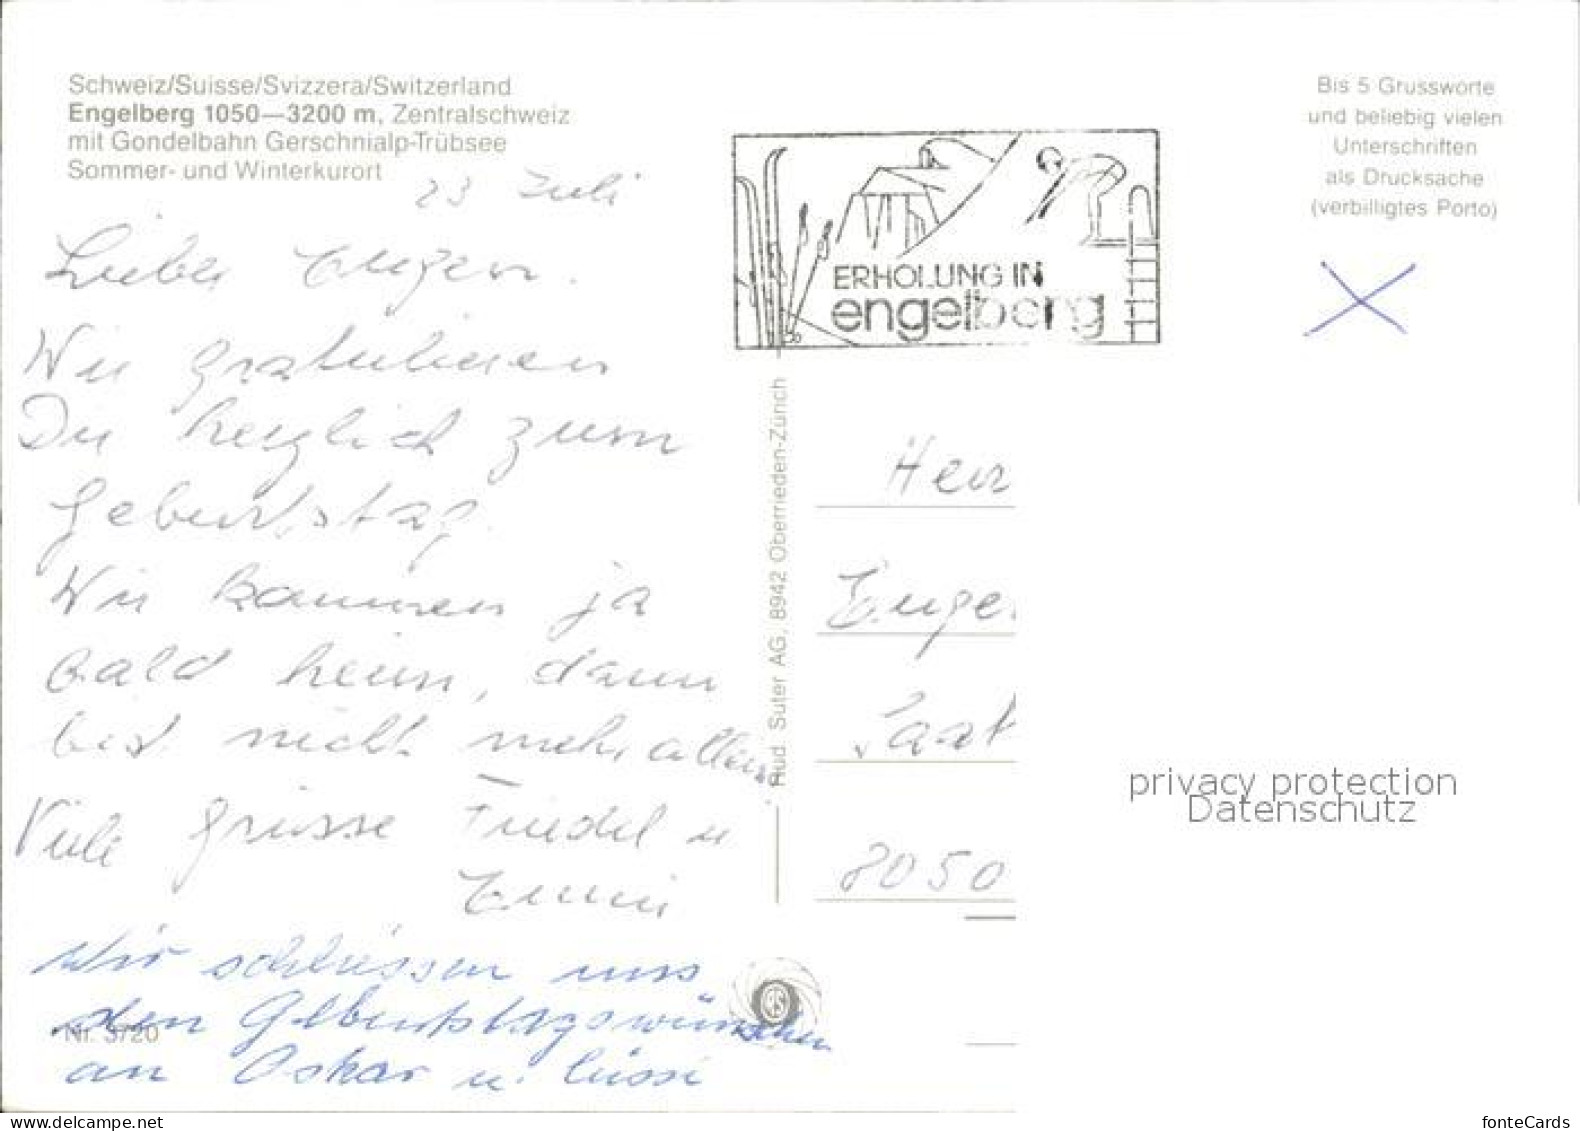 Schweiz/Suisse/Svizzera/Switzerland
Engelberg 1050—3200 m, Zentralschweiz
mit Gondelbahn Gerschnialp-Trübsee
Sommer- und Winterkurort
23 Juli
Lieber Eugen.
Wir gratulieren
Dir herzlich zum
Geburtstag.
Wir kommen ja
bald heim, dann
bist nicht mehr allein
Viele Grüsse Friedel u
Emmi
Wir schliessen uns
den Geburtstagswünschen
an Oskar u. Lüssi
Nr. 3720
ERHOLUNG IN
engelberg
Rud. Suter AG, 8942 Oberrieden-Zürich
Bis 5 Grussworte
und beliebig vielen
Unterschriften
als Drucksache
(verbilligtes Porto)
Herr
Eugen
Saat
8050
privacy protection
Datenschutz
my-kolibri.com
fonteCards